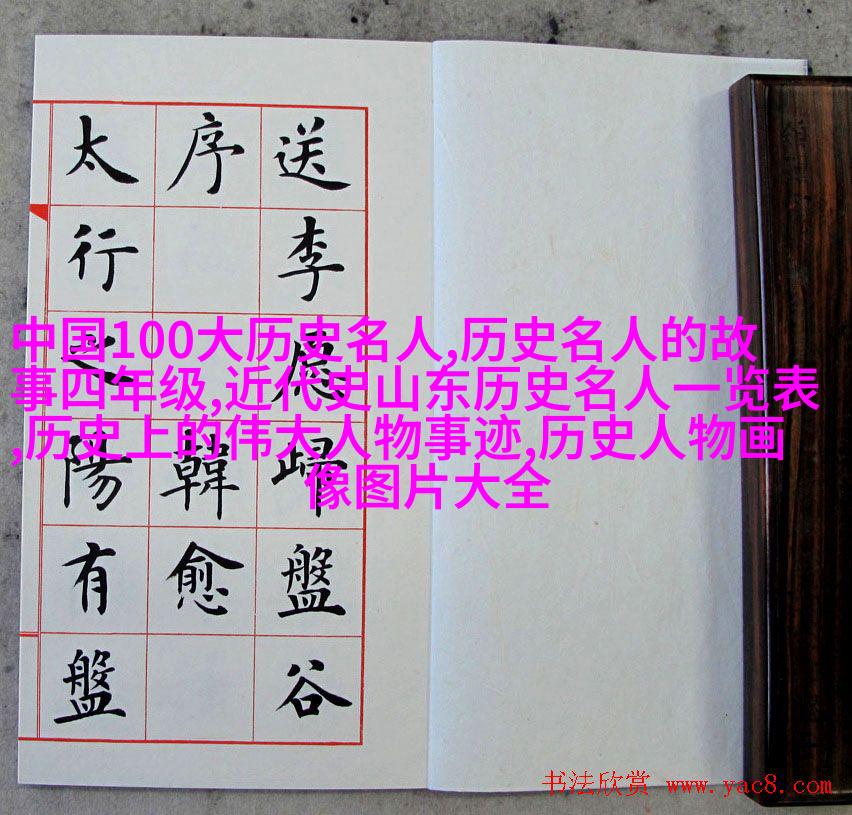 送李愿歸盤谷
序韓愈
太行之陽有盤
中国100大历史名人,历史名人的故
事四年级,近代史山东历史名人一览表
,历史上的伟大人物事迹,历史人物画
像图片大全
书法欣赏 www.yac8.com